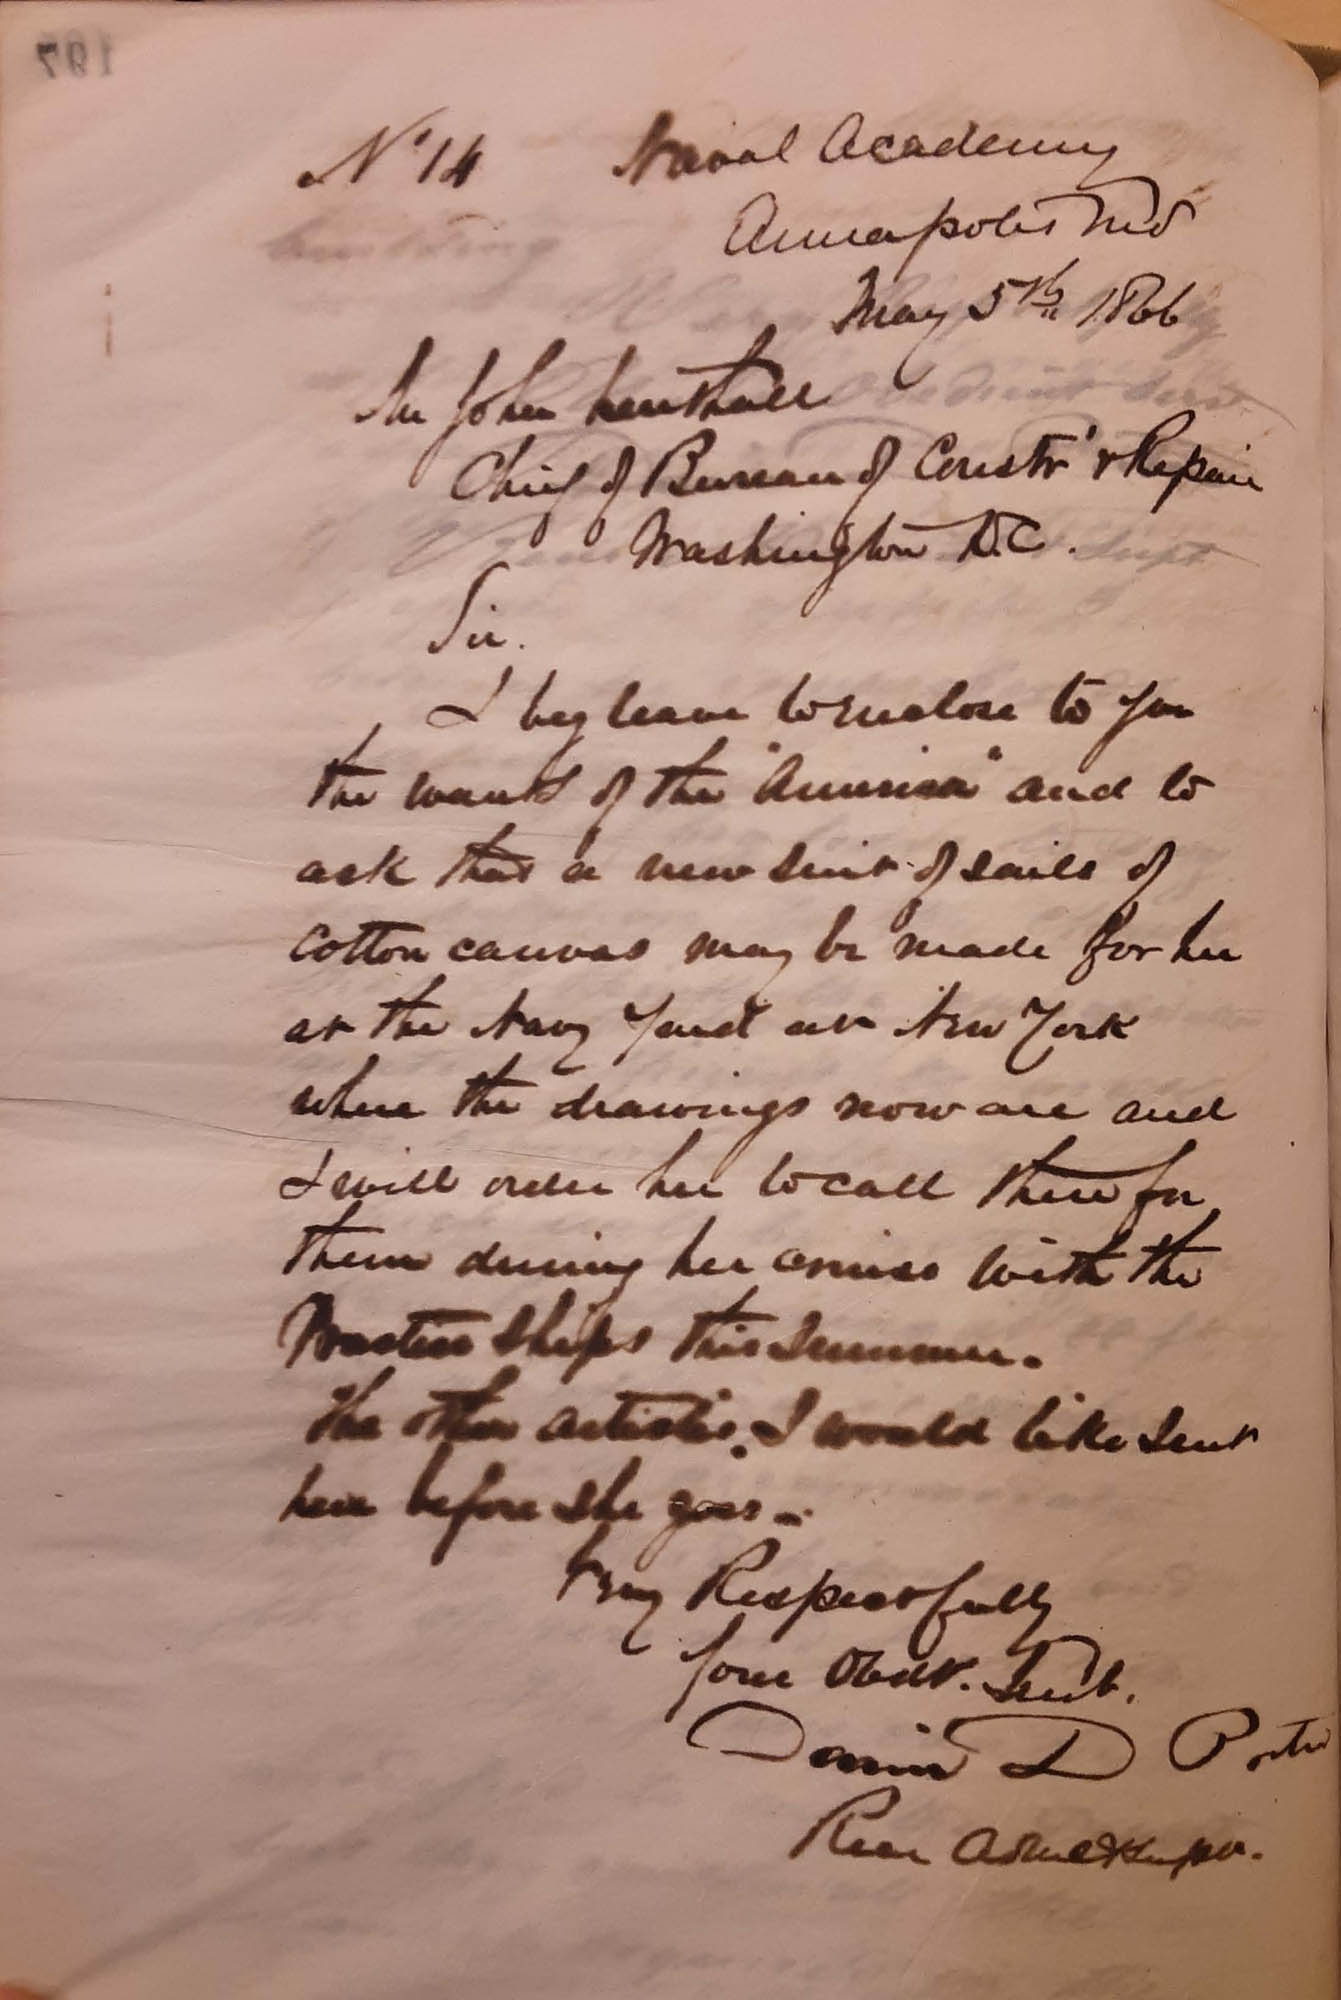 197
No 14 Naval Academy
Annapolis Md
May 5th 1866
Mr John Lenthall
Chief of Bureau of Constr' & Repair
Washington D.C.
Sir.
I beg leave to enclose to you
the wants of the "America" and to
ask that a new suit of sails of
cotton canvas may be made for her
at the Navy Yard at New York
where the drawings now are and
I will order her to call there for
them during her cruise with the
Practice Ships this Summer.
The other articles, I would like sent
here before she goes.
Very Respectfully
Your Obdt. Servt.
David D Porter
Rear Adml & Supt.